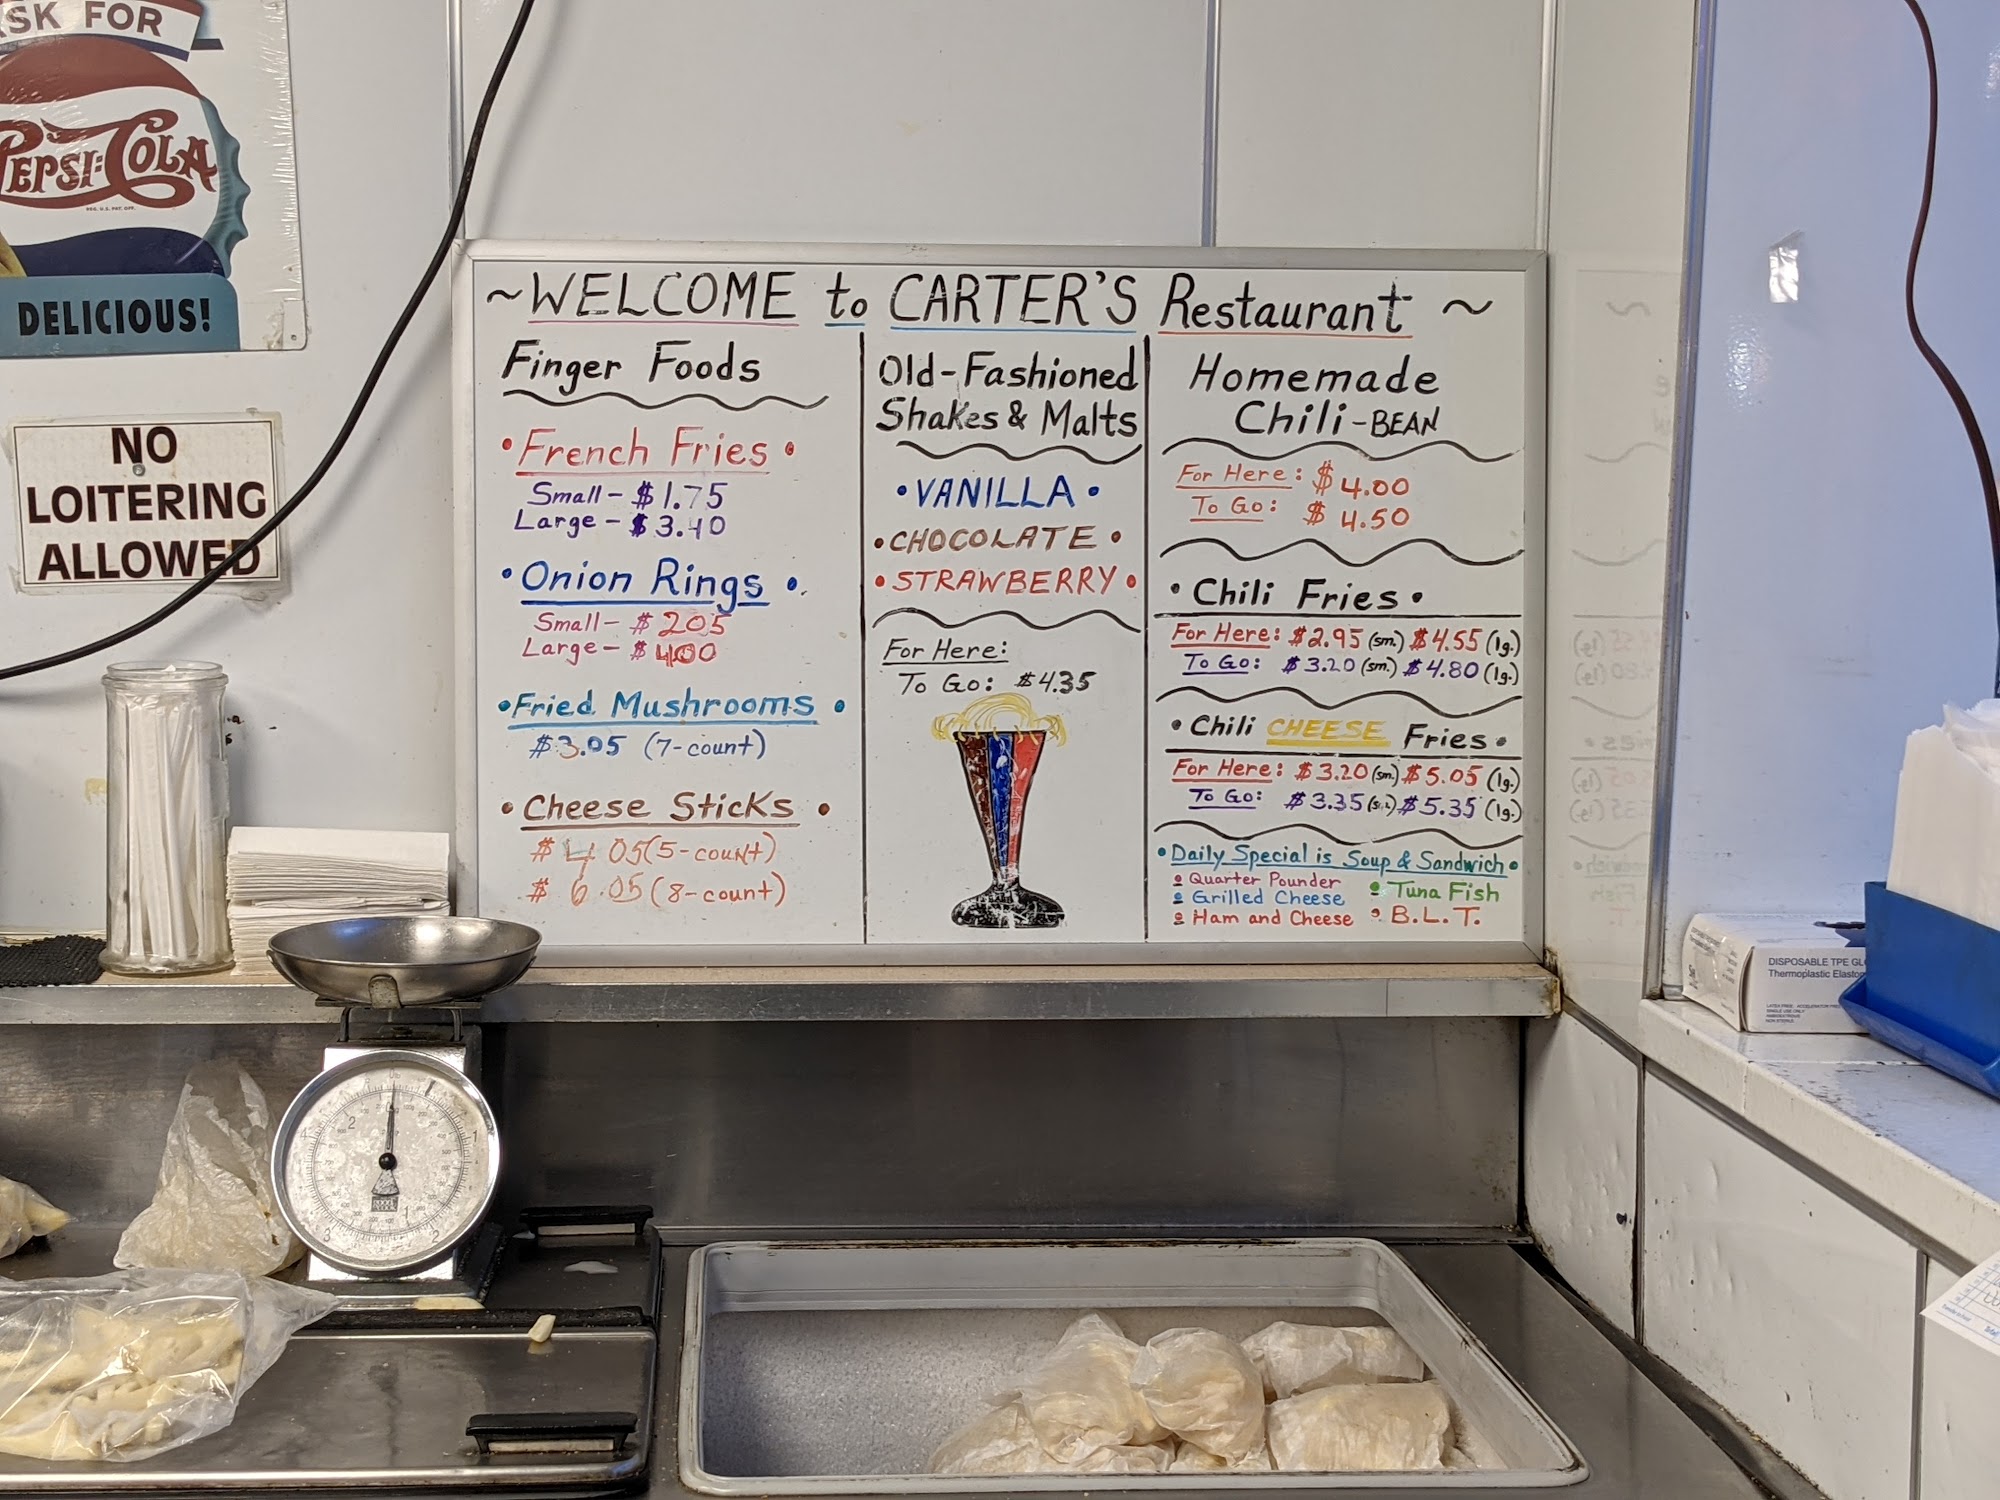 SK FOR
PEPSI:COLA
REG. U.S. PAT. OFF.
DELICIOUS!
NO
LOITERING
ALLOWED
~WELCOME to CARTER'S Restaurant ~
Finger Foods
• French Fries •
Small - $1.75
Large - $3.40
• Onion Rings •
Small - $ 205
Large - $ 400
• Fried Mushrooms •
$3.05 (7-count)
• Cheese Sticks •
$ 4 05 (5-count)
$ 6.05 (8-count)
Old-Fashioned
Shakes & Malts
• VANILLA •
• CHOCOLATE •
• STRAWBERRY •
For Here:
To Go: $4.35
Homemade
Chili - BEAN
For Here: $ 4.00
To Go: $ 4.50
• Chili Fries •
For Here: $2.95 (sm.) $4.55 (lg.)
To Go: $3.20 (sm.) $4.80 (lg.)
• Chili CHEESE Fries •
For Here: $3.20 (sm.) $5.05 (lg.)
To Go: $3.35 (sm.) $5.35 (lg.)
• Daily Special is Soup & Sandwich •
Quarter Pounder
Grilled Cheese
Ham and Cheese
Tuna Fish
B.L.T.
DISPOSABLE TPE GL
Thermoplastic Elasto